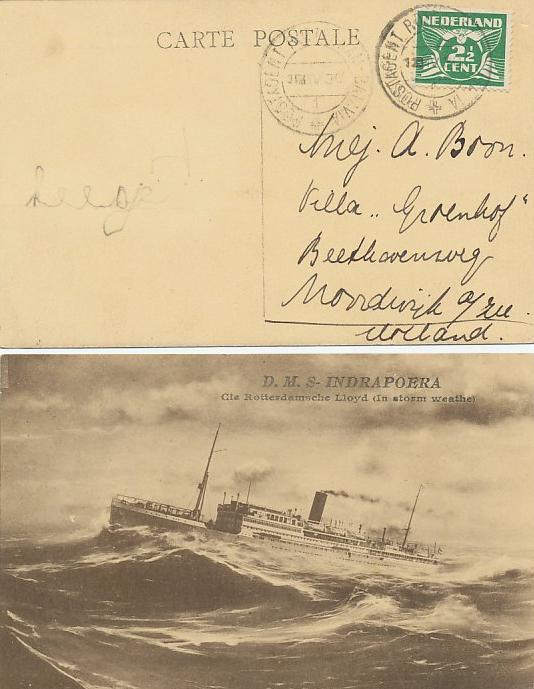 CARTE POSTALE
NEDERLAND
2½
CENT
POSTAGENT
POSTAGENT
Mej. A. Boon.
Villa „Groenhof“
Beethovenweg
Noordwijk a/zee.
Holland.
D. M. S- INDRAPOERA
Cie Rotterdamsche Lloyd (In storm weathe)